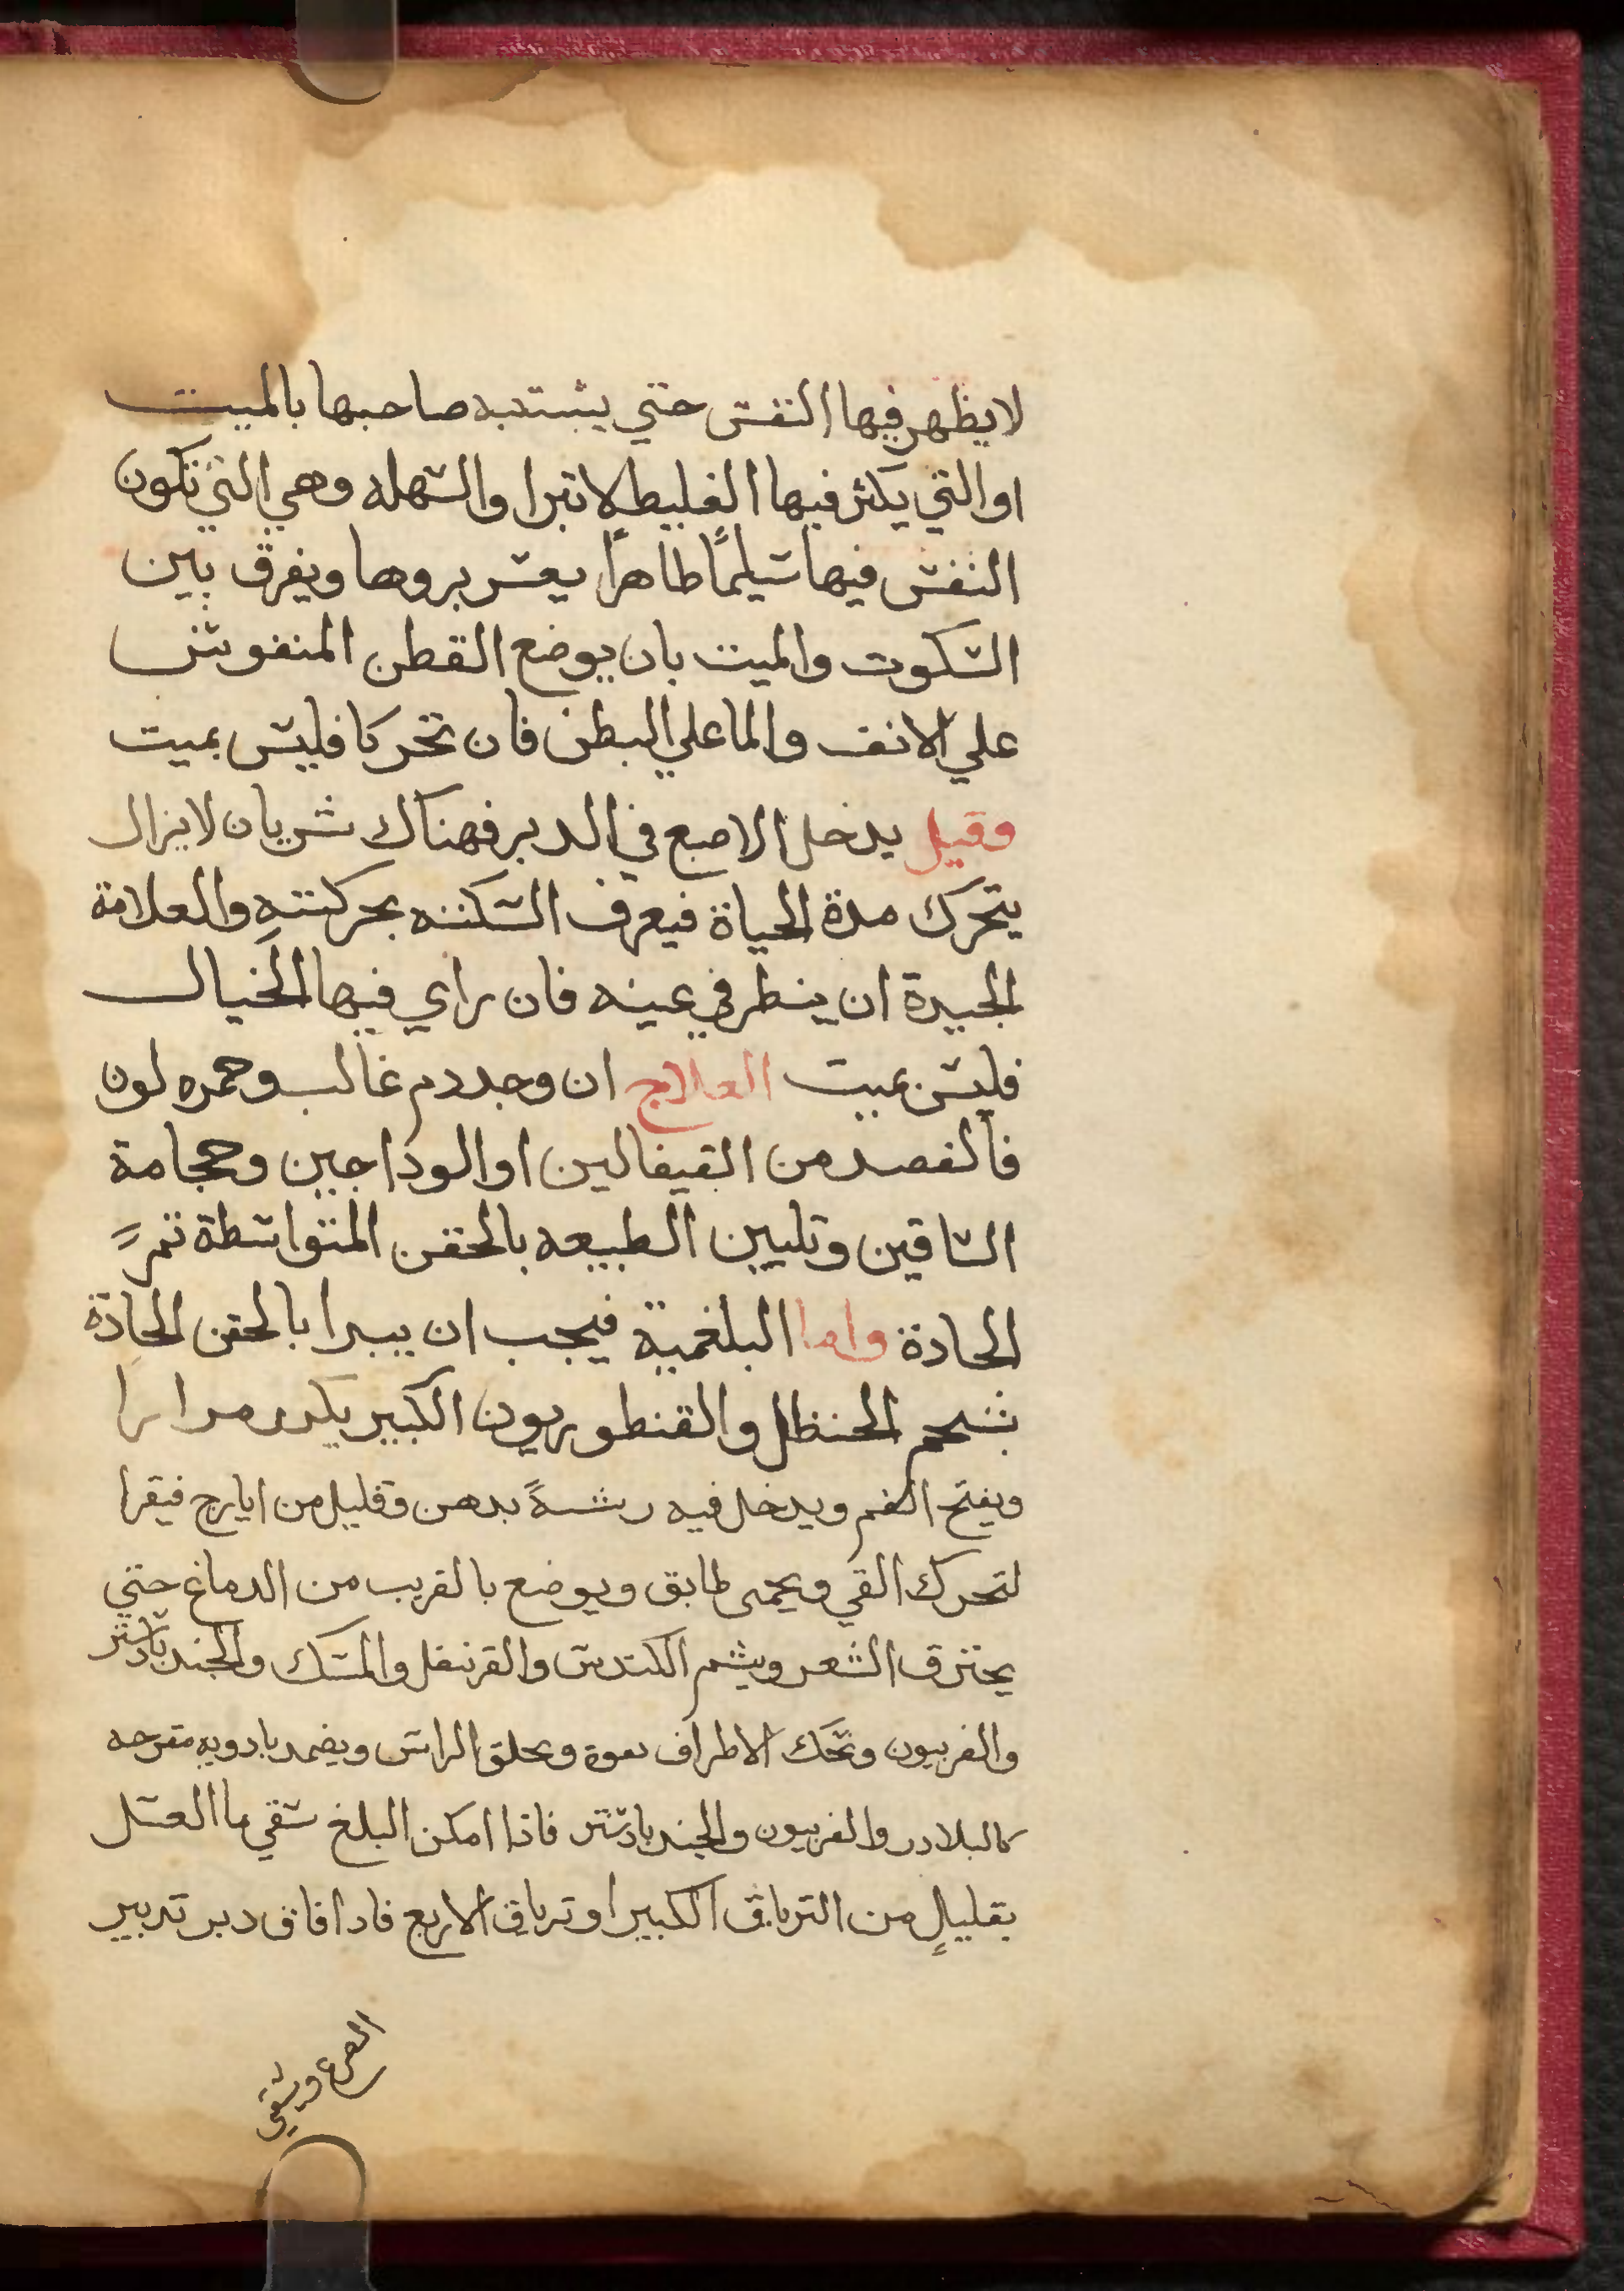 لا يظهر فيها النفس حتي يشتبه صاحبها بالميت
او التي يكثر فيها الغليط لا تبرا والسهله وهي التي تكون
النفس فيها سليمًا طاهرًا يعسر بروها ويفرق بين
السكوت والميت بان يوضع القطن المنفوش
علي الانف والما علي البطن فان تحركا فليس بميت
وقيل يدخل الاصبع في الدبر فهناك شريان لا يزال
يتحرك مدة الحياة فيعرف السكته بحركته والعلامة
الجيدة ان ينطر في عينه فان راي فيها الخيال
فليس بميت العلاج ان وجد دم غالب وحمره لون
فالفصد من القيفالين او الوداجين وحجامة
الساقين وتليين الطبيعه بالحقن المتواسطة ثم
الحادة واما البلغمية فيجب ان يبرا بالحقن الحادة
بشحم الحنظل والقنطوريون الكبير يكرر مرارا
ويفتح الفم ويدخل فيه ريشةً بدهن وقليل من ايارج فيقرا
لتحرك القي ويحمى طابق ويوضع بالقرب من الدماغ حتي
يحترق الشعر ويشم الكندس والقرنفل والمسك والجندبادستر
والفربيون وتحك الاطراف بقوة ويحلق الراس ويضمد بادويه مقرحه
كالبلادر والفربيون والجندبادستر فاذا امكن البلغ سقي ما العسل
بقليلٍ من الترياق الكبير او ترياق الاربع فاد افاق دبر تدبير
الصرع ويسقي